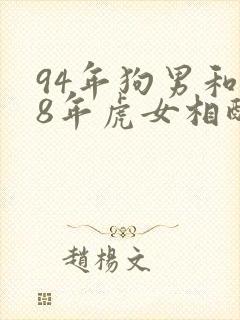 94年狗男和
8年虎女相
趙楊文